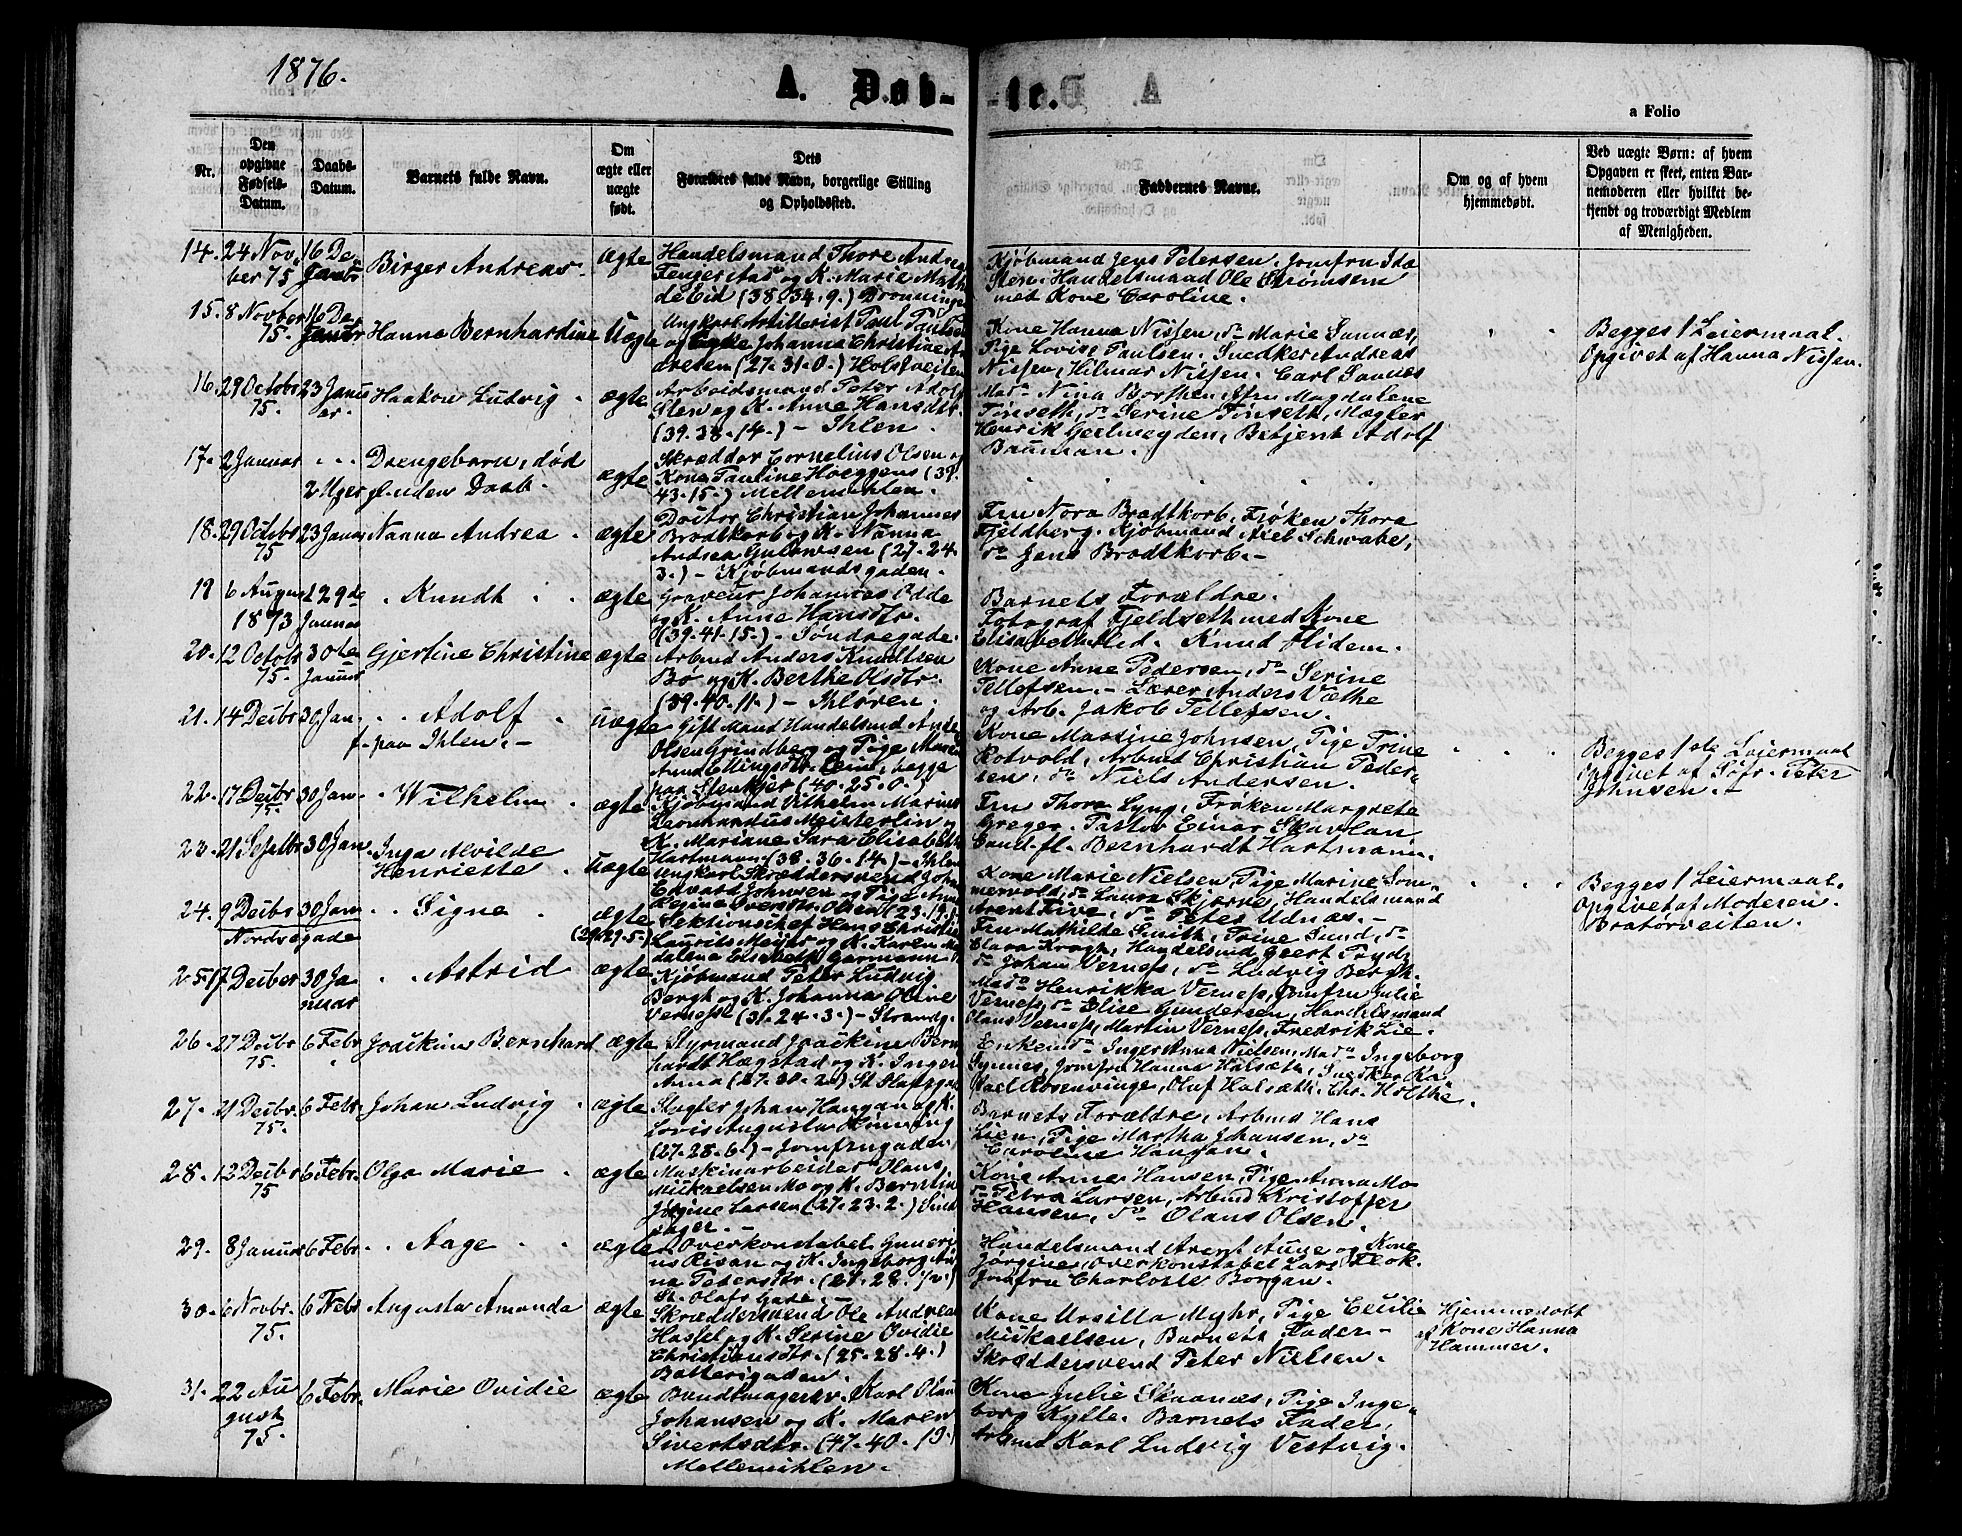 1876.
A. Døb-
te.
a Folio
Nr.
Den opgivne Fødsels-Datum.
Daabs-Datum.
Barnets fulde Navn.
Om ægte eller uægte født.
Dets Forældres fulde Navn, borgerlige Stilling og Opholdssted.
Faddernes Navne.
Om og af hvem hjemmedøbt.
Ved uægte Børn: af hvem Opgaven er skeet, enten Barnemoderen eller hvilket betjendt og troværdigt Medlem af Menigheden.
14. 24 Novber 75 16 De Janbr Birger Andreas ægte
Handelsmand Thore Andre
Fenger Aas og K. Marie Mat
de Eid (38. 34. 9.) Dronningen
Kjøbmand Jens Petersen. Jomfru Ida
Sten. Handelsmand Ole Strømsem
met Kone Caroline.
15. 8 Novber 75. 16 De Janbr Hanna Bernhardine Uægte
Ungkarl Artillerist Paul Paulsen
og Enke Johanna Christine An
dresen (27. 31. 0.) Holstveiten
Kone Hanna Nissen, do Marie Sannæs,
Pige Lovise Paulsen. Snedker Andreas
Nissen, Hilmar Nissen. Carl Sannæs
Begges 1 Leiermaal.
Opgivet af Hanna Nissen.
16. 29 Octobr 75. 23 Januer Haakon Ludvig ægte
Arbeidsmand Peter Adolf
Sten og K. Anne Hansdtr.
(39. 38. 14.) - Ihlen.
Mad. Nina Borthen, Jfru Magdalene
Finseth, do Serine Finseth, Mægler
Henrik Geelmeyden, Betjent Adolf
Bauman.
17. 2 Januar Drengebarn, død
2 Uger gl. uden Daab. ægte
Skrædder Cornelius Olsen og
Kone Pauline Hoeggens (39.
43. 15.) Mellemihlen.
18. 29 Octobr 75 23 Janua Nanna Andrea ægte
Doctor Christian Johannes
Bradtkorb og K. Nanna
Andrea Gulowsen (27. 24.
3.) - Kjøbmandsgaden.
Fru Nora Bradtkorb. Frøken Thora
Fjeldberg. Kjøbmand Axel Schwabe,
do Jens Bradtkorb. -
19 6 August 1873 29de Januar Kundt ægte
Graveur Johannes Odde
og K. Anne Hansdtr.
(39. 41. 15.) - Søndregade.
Barnets Forældre.
Fotograf Fjeldseth med Kone
Elisabeth Lid. Knud Flidem.
20. 12 Octobr 75. 30te Januar Gjertine Christine ægte
Arbmd Anders Knudtsen
Bo og K. Berthe Olsdtr.
(39. 40. 11.) - Ihløren.
Kone Anne Pedersen, do Serine
Tellefsen. - Lærer Anders Væthe
og Arb. Jakob Tellefsen.
21. 14 Decbr 30 Jan Adolf
f. paa Ihlen. - uægte
Gift Mand Handelsmd Ande
Olsen Grindberg og Pige Maren
Anna Ellingsdtr. Lein, begge
paa Stenkjer (40. 25. 0.)
Kone Mastine Johnsen, Pige Trine
Rotvold, Arbmd Christian Peder-
sen, do Niels Andersen.
Begges 1ste Leiermaal
Opgivet af Jofr. Peter
Johnsen. -
22. 17 Decbr 75. 30 Jan Wilhelm ægte
Kjøbmand Vilhelm Marius
Leonhardus Meisterlin og
K. Mariane Sara Elisabeth
Hartmann (38. 36. 14) - Ihlen
Fru Thora Lyng, Frøken Margrete
Greger. Pastor Einar Skavlan
Cand. fl. Bernhardt Hartmann.
23. 21 Septbr 30 Jan Inga Alvilde
Henriette uægte
Ungkarl Skræddersvend John
Edvard Johnsen og Pige Anne
Regine Oversdtr. Olsen (23. 19. 1.
Kone Marie Nielsen, Pige Marine Som-
mervold, do Laura Skjørne, Handelsmand
Arent Five, do Peter Udnæs. -
Begges 1 Leiermaal.
Opgivet af Moderen.
Bratørveiten.
24. 9 Decbr 30 Jan Signe ægte
Nordregade (29. 29. 5.)
Sektionschef Hans Christian
Laurits Meyer og K. Karen Ma
dalena Elisabeth Garmann
Fru Mathilde Smith, Trine Sund, do
Clara Krogh, Handelsmd Geert Frydl
do Johan Verness, do Ludvig Bergh.
25. 17 Decber 30 Januar Astrid ægte
Kjøbmand Peter Ludvig
Bergh og K. Johanna Oline
Verness (31. 24. 3.) - Strandg.
Mad. Henrikka Verness, Jomfru Julie
Verness, do Elise Gundersen, Handelsmand
Olaus Verness, Martin Verness, Fredrik Lie.
26. 27 Decbr 75. 6 Febr Joackim Bernhard ægte
Styrmand Joackim Bern
hardt Hægstad og K. Inger
Anna (27. 30. 2.) St. Olafsgad
Enkemd. Inger Anna Nielsen, Mad. Ingeborg
Synnes, Jomfru Hanna Halsæth, Snedker Ka
Rael Rosenvinge, Olaf Halsæth, Chr. Holthe.
27. 21 Decbr. 75. 6 Febr. Johan Ludvig ægte
Slagter Johan Haugan og K.
Lovis Augusta Henning
(27. 28. 6.) - Jomfrugaden
Barnets Forældre, Arbmd Hans
Lien, Pige Martha Johansen, do
Caroline Haugan.
28. 12 Decbr 75 6 Febr. Olga Marie ægte
Maskinarbeider Olaus
Mickaelsen Mo og K. Berntin
Jørgine Larsen (27. 23. 2.) Sind
sager. -
Kone Anne Hansen, Pige Anna Mo
do Petra Larsen, Arbmd Kristoffer
Hansen, do Olaus Olsen.
29. 8 Januar 6 Febr Aage ægte
Overkonstabel Gunneri
us Risan og K. Ingeborg An
na Petersdtr. (27. 28. 1/2.)
St. Olafs Gade. -
Handelsmand Arent Aune og Kone
Jørgine, Overkonstabel Lars Flok.
Jomfru Charlotte Borgan.
30. 6 Novbr. 75. 6 Febr Augusta Amanda ægte
Skræddersvend Ole Andreas
Hassel og K. Serine Ovidie
Christiansdtr. (25. 28. 4.)
Batterigaden.
Kone Ursilla Myhr, Pige Cecilie
Mickaelsen, Barnets Fader -
Skræddersvend Peter Nielsen.
Hjemmedøbt
af Kone Hanna
Hammer.
31. 22 August 75. 6 Febr. Marie Ovidie ægte
Bundtmagersv. Karl Olaus
Johansen og K. Maren
Sivertsdtr. (47. 40. 19.)
Mellemihlen.
Kone Julie Skaanæs, Pige Inge-
borg Kylle. Barnets Fader,
Arbmd Karl Ludvig Vestvig.